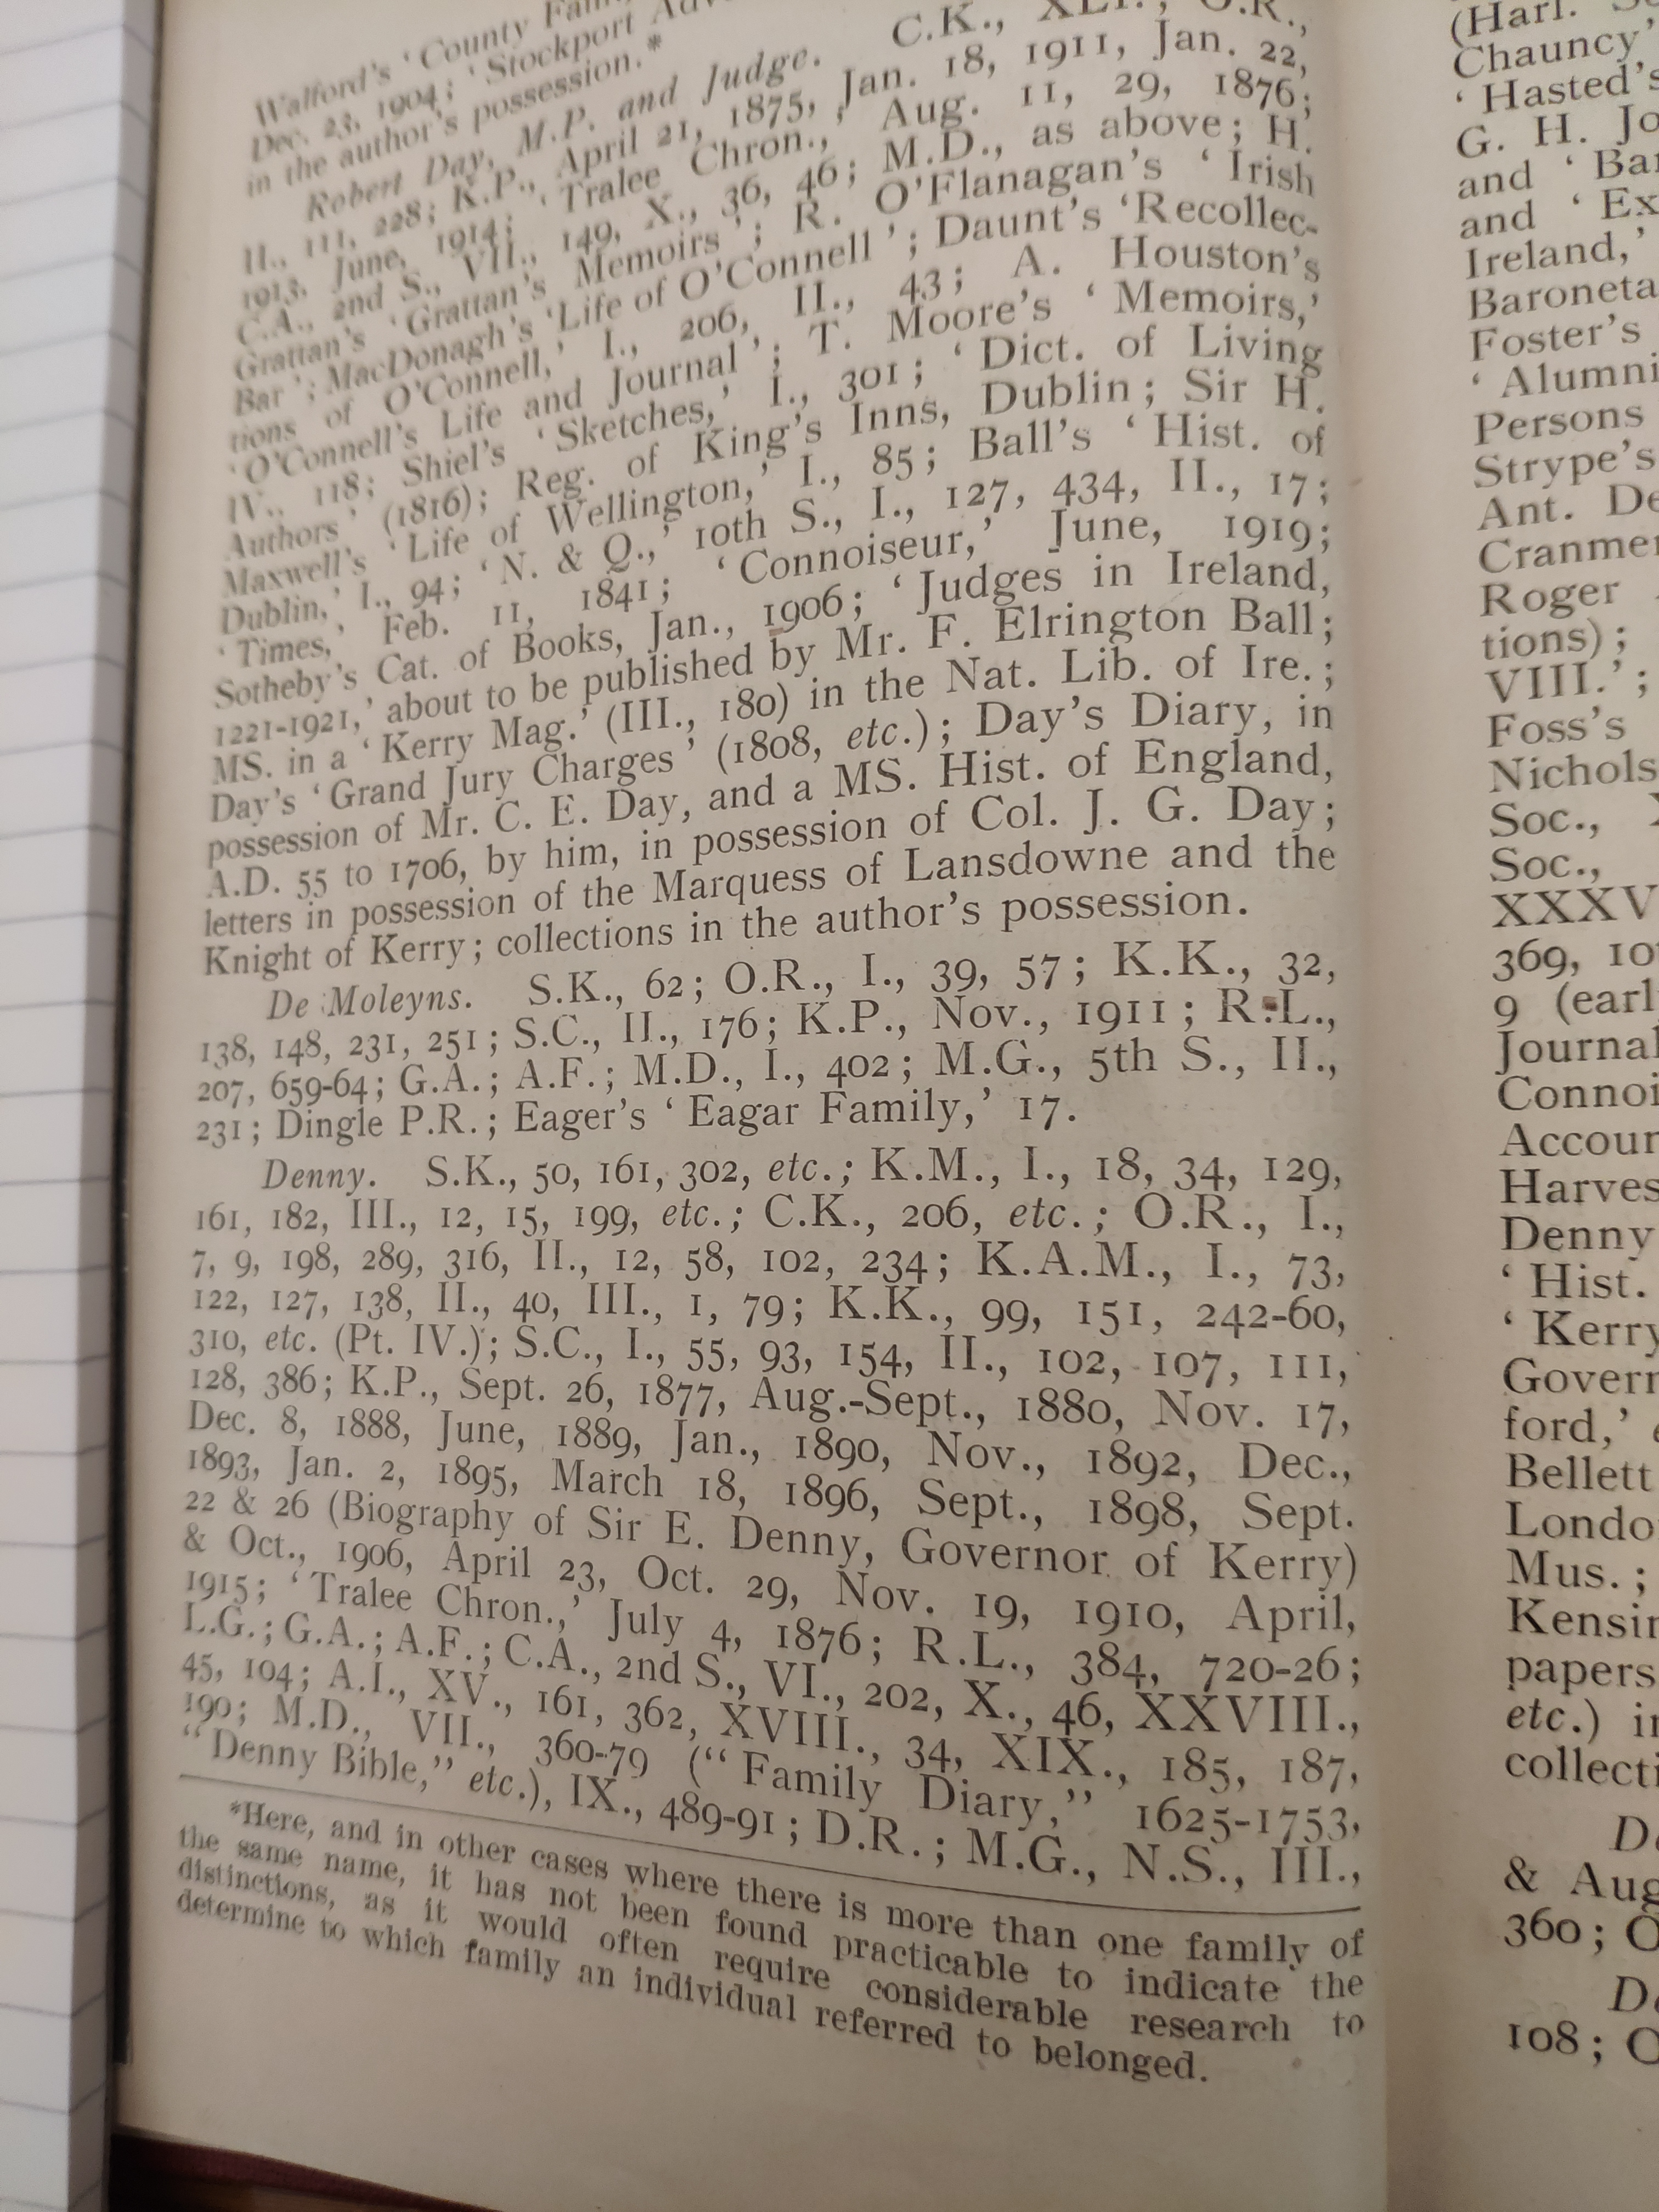 Walford's ' County
Dec. 23, 1904; ' Stockport
in the author's possession.*
Robert Day, M.P. and Judge. C.K., XLI.; O.R.,
II., 111, 228; K.P., April 21, 1875, Jan. 18, 1911, Jan. 22,
1913, June, 1914; ' Tralee Chron.,' Aug. 11, 29, 1876;
C.A., 2nd S., VII., 149, X., 36, 46; M.D., as above; H.
Grattan's ' Grattan's Memoirs '; R. O'Flanagan's ' Irish
Bar '; MacDonagh's ' Life of O'Connell '; Daunt's ' Recollec-
tions of O'Connell,' I., 206, II., 43; A. Houston's
' O'Connell's Life and Journal '; T. Moore's ' Memoirs,'
IV., 118; Shiel's ' Sketches,' I., 301; ' Dict. of Living
Authors ' (1816); Reg. of King's Inns, Dublin; Sir H.
Maxwell's ' Life of Wellington,' I., 85; Ball's ' Hist. of
Dublin,' I., 94; ' N. & Q.,' 10th S., I., 127, 434, II., 17;
' Times, ' Feb. 11, 1841; ' Connoiseur,' June, 1919;
Sotheby's Cat. of Books, Jan., 1906; ' Judges in Ireland,
1221-1921,' about to be published by Mr. F. Elrington Ball;
MS. in a ' Kerry Mag.' (III., 180) in the Nat. Lib. of Ire.;
Day's ' Grand Jury Charges ' (1808, etc.); Day's Diary, in
possession of Mr. C. E. Day, and a MS. Hist. of England,
A.D. 55 to 1706, by him, in possession of Col. J. G. Day;
letters in possession of the Marquess of Lansdowne and the
Knight of Kerry; collections in the author's possession.
De Moleyns. S.K., 62; O.R., I., 39, 57; K.K., 32,
138, 148, 231, 251; S.C., II., 176; K.P., Nov., 1911; R.L.,
207, 659-64; G.A.; A.F.; M.D., I., 402; M.G., 5th S., II.,
231; Dingle P.R.; Eager's ' Eagar Family,' 17.
Denny. S.K., 50, 161, 302, etc.; K.M., I., 18, 34, 129,
161, 182, III., 12, 15, 199, etc.; C.K., 206, etc.; O.R., I.,
7, 9, 198, 289, 316, II., 12, 58, 102, 234; K.A.M., I., 73,
122, 127, 138, II., 40, III., 1, 79; K.K., 99, 151, 242-60,
310, etc. (Pt. IV.); S.C., I., 55, 93, 154, II., 102, 107, 111,
128, 386; K.P., Sept. 26, 1877, Aug.-Sept., 1880, Nov. 17,
Dec. 8, 1888, June, 1889, Jan., 1890, Nov., 1892, Dec.,
1893, Jan. 2, 1895, March 18, 1896, Sept., 1898, Sept.
22 & 26 (Biography of Sir E. Denny, Governor of Kerry)
& Oct., 1906, April 23, Oct. 29, Nov. 19, 1910, April,
1915; ' Tralee Chron.,' July 4, 1876; R.L., 384, 720-26;
L.G.; G.A.; A.F.; C.A., 2nd S., VI., 202, X., 46, XXVIII.,
45, 104; A.I., XV., 161, 362, XVIII., 34, XIX., 185, 187,
190; M.D., VII., 360-79 (" Family Diary," 1625-1753,
" Denny Bible," etc.), IX., 489-91; D.R.; M.G., N.S., III.,
*Here, and in other cases where there is more than one family of
the same name, it has not been found practicable to indicate the
distinctions, as it would often require considerable research to
determine to which family an individual referred to belonged.
(Harl.
Chauncy'
' Hasted's
G. H. Jo
and ' Bar
and ' Ex
Ireland,'
Baroneta
Foster's
' Alumni
Persons
Strype's
Ant. De
Cranmer
Roger
tions);
VIII.';
Foss's
Nichols
Soc.,
Soc.,
XXXV
369, 10
9 (earl
Journal
Connoi
Accour
Harves
Denny
' Hist.
' Kerry
Govern
ford,'
Bellett
Londo
Mus.;
Kensin
papers
etc.) in
collecti
De
& Aug
360; O
De
108; O